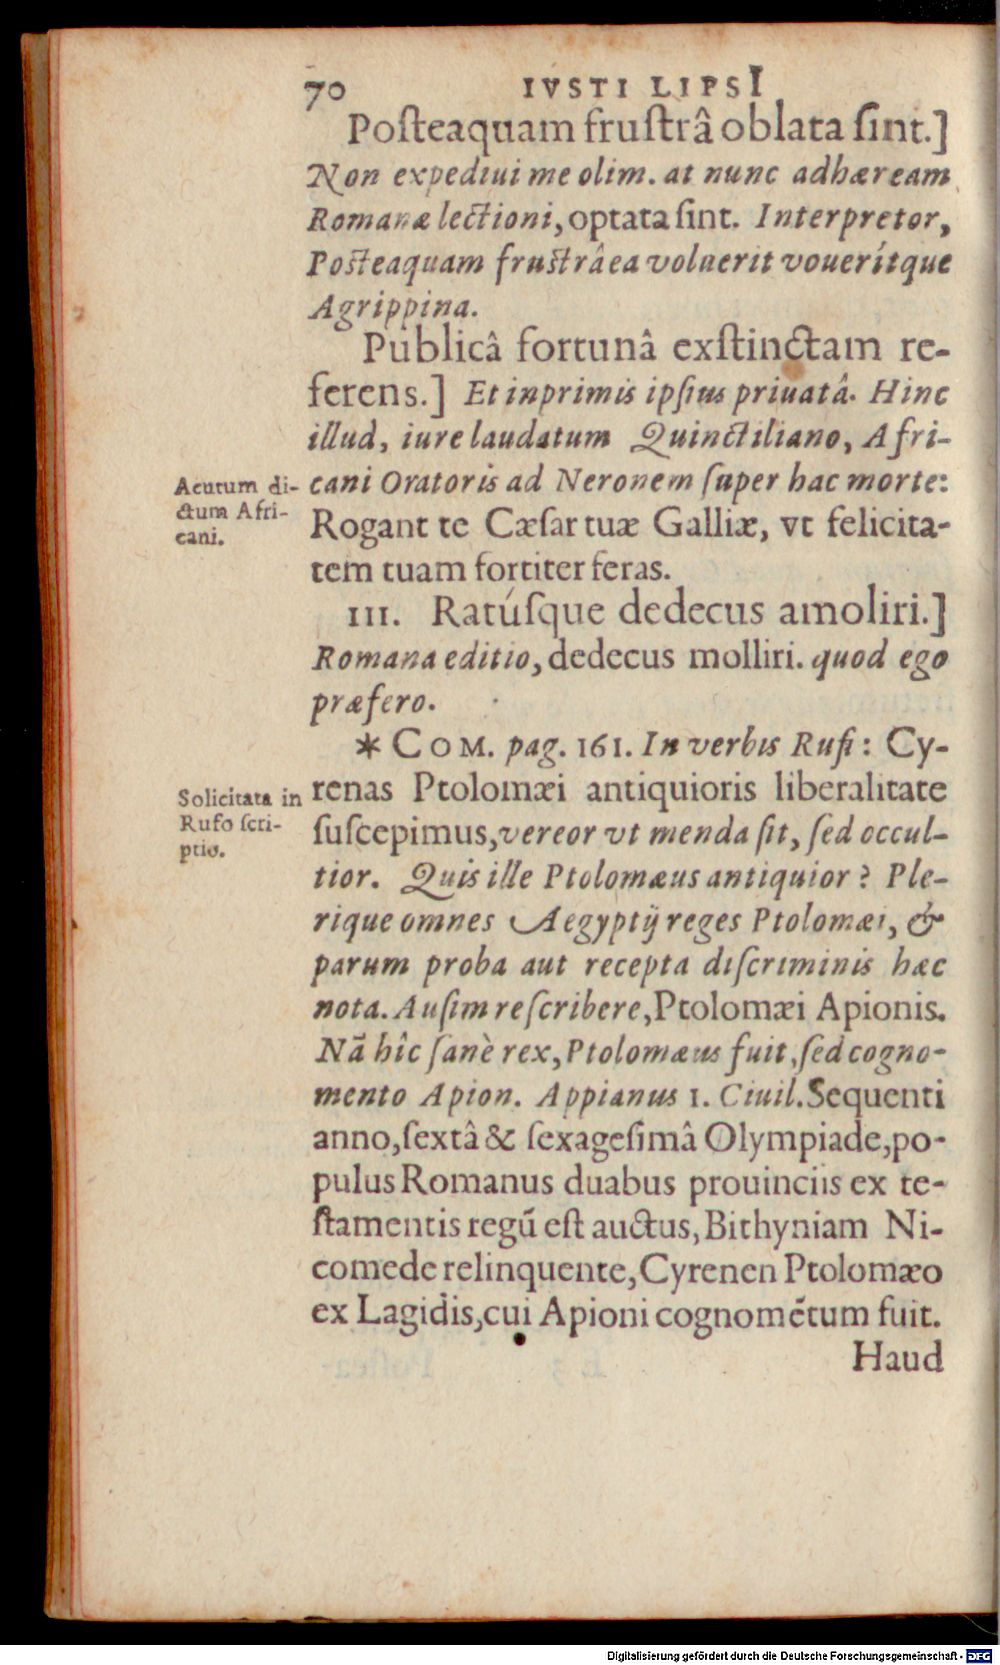 70 IVSTI LIPSI
Posteaquam frustrâ oblata sint.]
Non expediui me olim. at nunc adhæream
Romanæ lectioni, optata sint. Interpretor,
Posteaquam frustrâ ea voluerit vouerítque
Agrippina.
Publicâ fortunâ exstinctam re-
ferens.] Et inprimis ipsius priuatâ. Hinc
illud, iure laudatum Quinctiliano, Afri-
cani Oratoris ad Neronem super hac morte:
Acutum di-
ctum Afri-
cani.
Rogant te Cæsar tuæ Galliæ, vt felicita-
tem tuam fortiter feras.
III. Ratúsque dedecus amoliri.]
Romana editio, dedecus molliri. quod ego
præfero.
* COM. pag. 161. In verbis Rufi: Cy-
renas Ptolomæi antiquioris liberalitate
Solicitata in
Rufo scri-
ptio.
suscepimus, vereor vt menda sit, sed occul-
tior. Quis ille Ptolomæus antiquior? Ple-
rique omnes Aegyptij reges Ptolomæi, &
parum proba aut recepta discriminis hæc
nota. Ausim rescribere, Ptolomæi Apionis.
Nã hîc sanè rex, Ptolomæus fuit, sed cogno-
mento Apion. Appianus 1. Ciuil. Sequenti
anno, sextâ & sexagesimâ Olympiade, po-
pulus Romanus duabus prouinciis ex te-
stamentis regũ est auctus, Bithyniam Ni-
comede relinquente, Cyrenen Ptolomæo
ex Lagidis, cui Apioni cognomẽtum fuit.
Haud
Digitalisierung gefördert durch die Deutsche Forschungsgemeinschaft - DFG